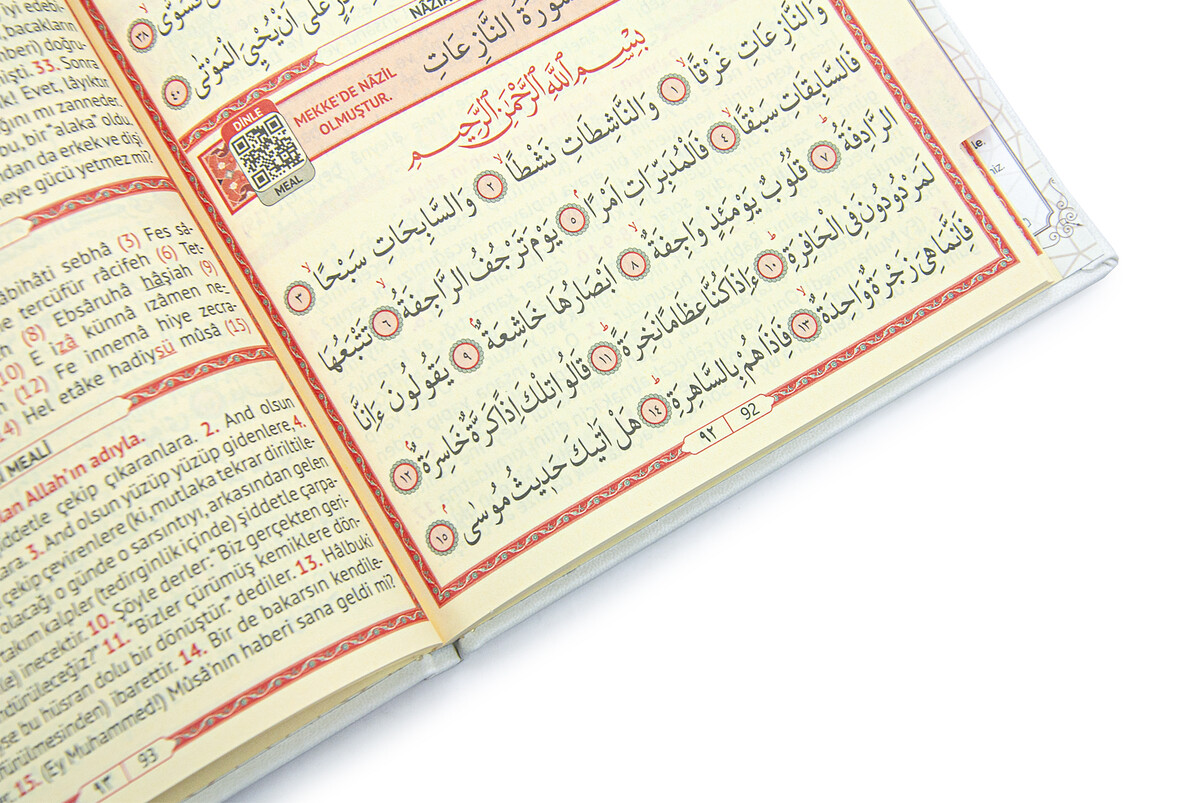 فَسَوّٰى ٣٨
عَلٰٓى اَنْ يُحْيِيَ الْمَوْتٰى ٤٠
سُورَةُ النَّازِعَاتِ
MEKKE'DE NÂZİL
OLMUŞTUR.
DİNLE
MEAL
بِسْمِ اللّٰهِ الرَّحْمٰنِ الرَّحِيمِ
وَالنَّازِعَاتِ غَرْقًا ١ وَالنَّاشِطَاتِ نَشْطًا ٢ وَالسَّابِحَاتِ سَبْحًا ٣
فَالسَّابِقَاتِ سَبْقًا ٤ فَالْمُدَبِّرَاتِ اَمْرًا ٥ يَوْمَ تَرْجُفُ الرَّاجِفَةُ ٦ تَتْبَعُهَا
الرَّادِفَةُ ٧ قُلُوبٌ يَوْمَئِذٍ وَاجِفَةٌ ٨ اَبْصَارُهَا خَاشِعَةٌ ٩ يَقُولُونَ ءَاِنَّا
لَمَرْدُودُونَ فِى الْحَافِرَةِ ١٠ ءَاِذَا كُنَّا عِظَامًا نَخِرَةً ١١ قَالُوا تِلْكَ اِذًا كَرَّةٌ خَاسِرَةٌ ١٢
فَاِنَّمَا هِىَ زَجْرَةٌ وَاحِدَةٌ ١٣ فَاِذَا هُمْ بِالسَّاهِرَةِ ١٤ هَلْ اَتٰيكَ حَدِيثُ مُوسٰى ١٥
٩٢ 92
bacakların
doğru-
33. Sonra
Evet, lâyıktır
ğını mı zanneder.
bu, bir "alaka" oldu.
ndan da erkek ve dişi
meye gücü yetmez mi?
âbihâti sebhâ (3) Fes sâ-
tercüfür râcifeh (6) Tet-
(8) Ebsâruhâ hâşiah (9)
(10) E izâ künnâ ızâmen ne-
(12) Fe innemâ hiye zecra-
14) Hel etâke hadiysü mûsâ (15)
MEALİ
lan Allah'ın adıyla.
şiddetle çekip çıkaranlara. 2. And olsun
3. And olsun yüzüp yüzüp gidenlere, 4.
çekip çevirenlere (ki, mutlaka tekrar diriltile-
olacağı o günde o sarsıntıyı, arkasından gelen
takım kalpler (tedirginlik içinde) şiddetle çarpa-
inecektir. 10. Şöyle derler: "Biz gerçekten geri-
ndürüleceğiz?" 11. "Bizler çürümüş kemiklere dön-
ise bu hüsran dolu bir dönüştür." dediler. 13. Hâlbuki
fürülmesinden) ibarettir. 14. Bir de bakarsın kendile-
15. (Ey Muhammed!) Mûsâ'nın haberi sana geldi mi?
٩٣ 93